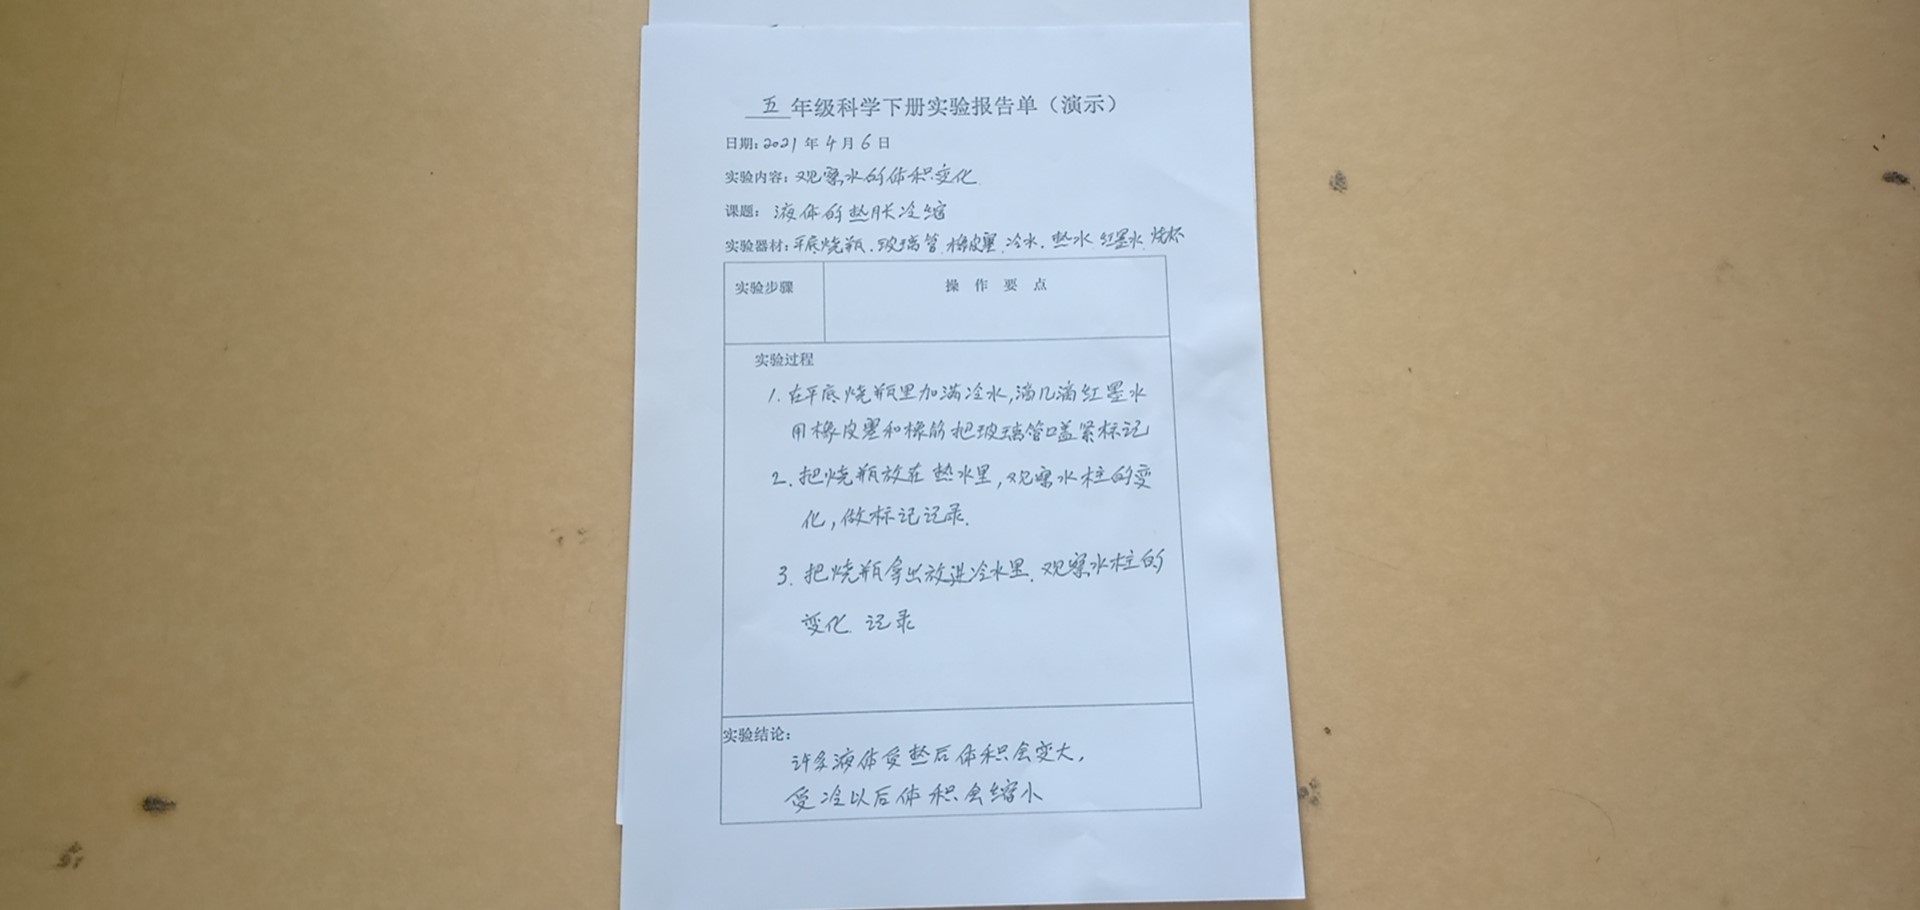 五年级科学下册实验报告单（演示）
日期:2021年4月6日
实验内容:观察水的体积变化.
课题: 液体的热胀冷缩
实验器材:平底烧瓶.玻璃管.橡皮塞.冷水.热水 红墨水 烧杯
实验步骤 操 作 要 点
实验过程
1.在平底烧瓶里加满冷水,滴几滴红墨水
用橡皮塞和橡筋把玻璃管口盖紧标记
2.把烧瓶放在热水里,观察水柱的变
化,做标记记录.
3.把烧瓶拿出放进冷水里.观察水柱的
变化 记录
实验结论:
许多液体受热后体积会变大,
受冷以后体积会缩小